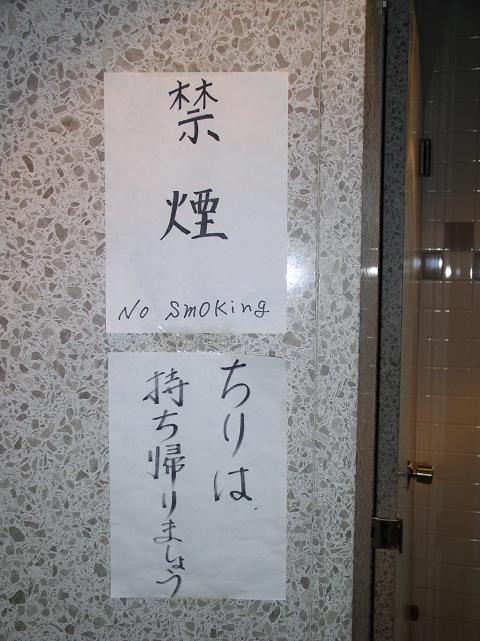 禁煙
No Smoking
ちりは、
持ち帰りましょう